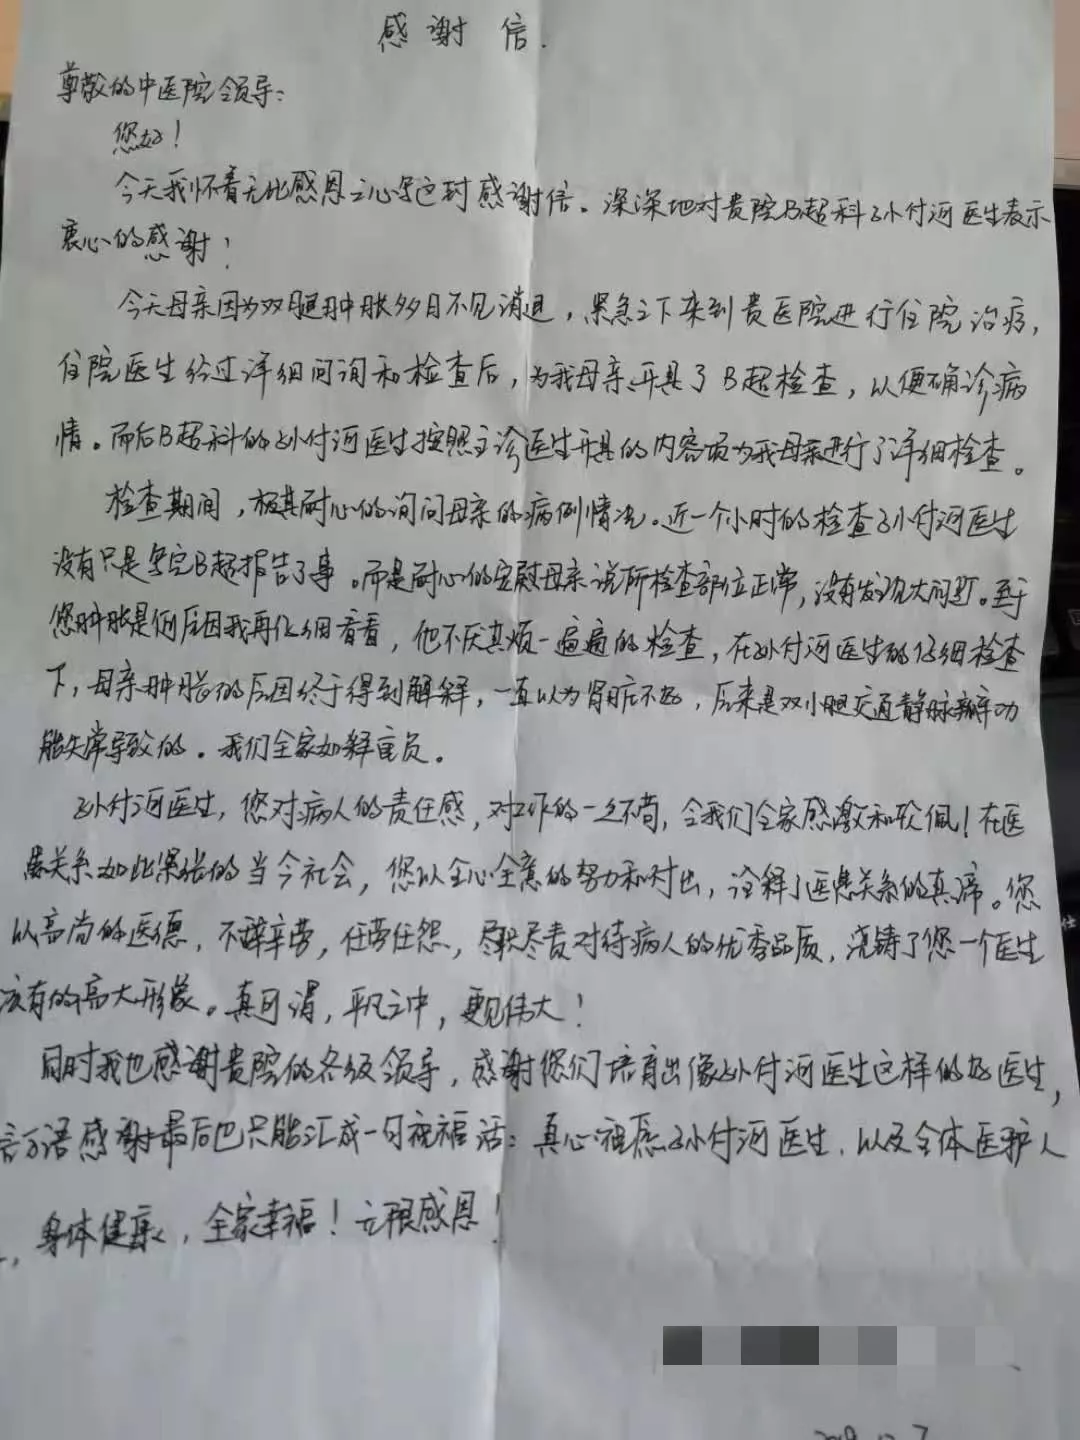 感谢信.
尊敬的中医院领导：
您好！
今天我怀着无比感恩之心写这封感谢信。深深地对贵院B超科孙付河医生表示
衷心的感谢！
今天母亲因为双腿肿胀多日不见消退，紧急之下来到贵医院进行住院治疗，
住院医生经过详细问询和检查后，为我母亲开具了B超检查，以便确诊病
情。而后B超科的孙付河医生按照主诊医生开具的内容项为我母亲进行了详细检查。
检查期间，极其耐心的询问母亲的病例情况。近一个小时的检查孙付河医生
没有只是写完B超报告了事。而是耐心的安慰母亲说所检查部位正常，没有发现大问题。至于
您肿胀是何原因我再仔细看看，他不厌其烦一遍遍的检查，在孙付河医生的仔细检查
下，母亲肿胀的原因终于得到解释，一直以为肾脏不好，后来是双小腿交通静脉瓣功
能失常导致的。我们全家如释重负。
孙付河医生，您对病人的责任感，对工作的一丝不苟，令我们全家感激和钦佩！在医
患关系如此紧张的当今社会，您以全心全意的努力和付出，诠释了医患关系的真谛。您
以高尚的医德，不辞辛劳，任劳任怨，尽职尽责对待病人的优秀品质，浇铸了您一个医生
该有的高大形象。真可谓，平凡之中，更见伟大！
同时我也感谢贵院的各级领导，感谢您们培育出像孙付河医生这样的好医生，
言万语感谢最后也只能汇成一句祝福话：真心祝愿孙付河医生，以及全体医护人
，身体健康，全家幸福！无限感恩！